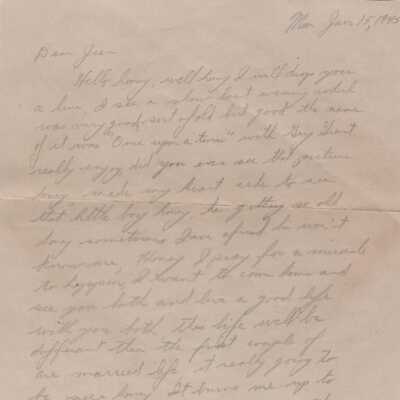 Mon Jan 15, 1945
Dear Jean
Hello honey, well honey I will drop you
a line, I see a show last evening which
was very good sort of old but good the name
of it was "Once upon a time" with Gary Grant
really enjoy, did you ever see that picture
honey, made my heart ache to see
that little boy honey he getting so old
honey sometimes I am afraid he won't
know me, Honey I pray for a miracle
to happen, I want to come home and
see you both and live a good life
with you both this life will be
different then the first couple of
are married life, it really going to
be honey It burns me up to